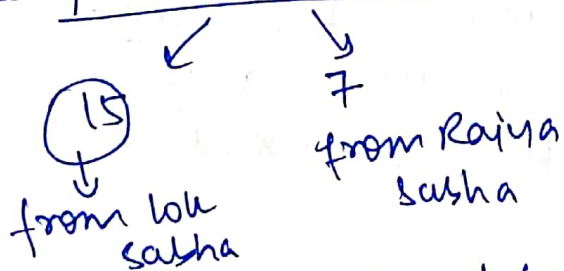 15
from lok
sabha
7
from Rajya
sabha